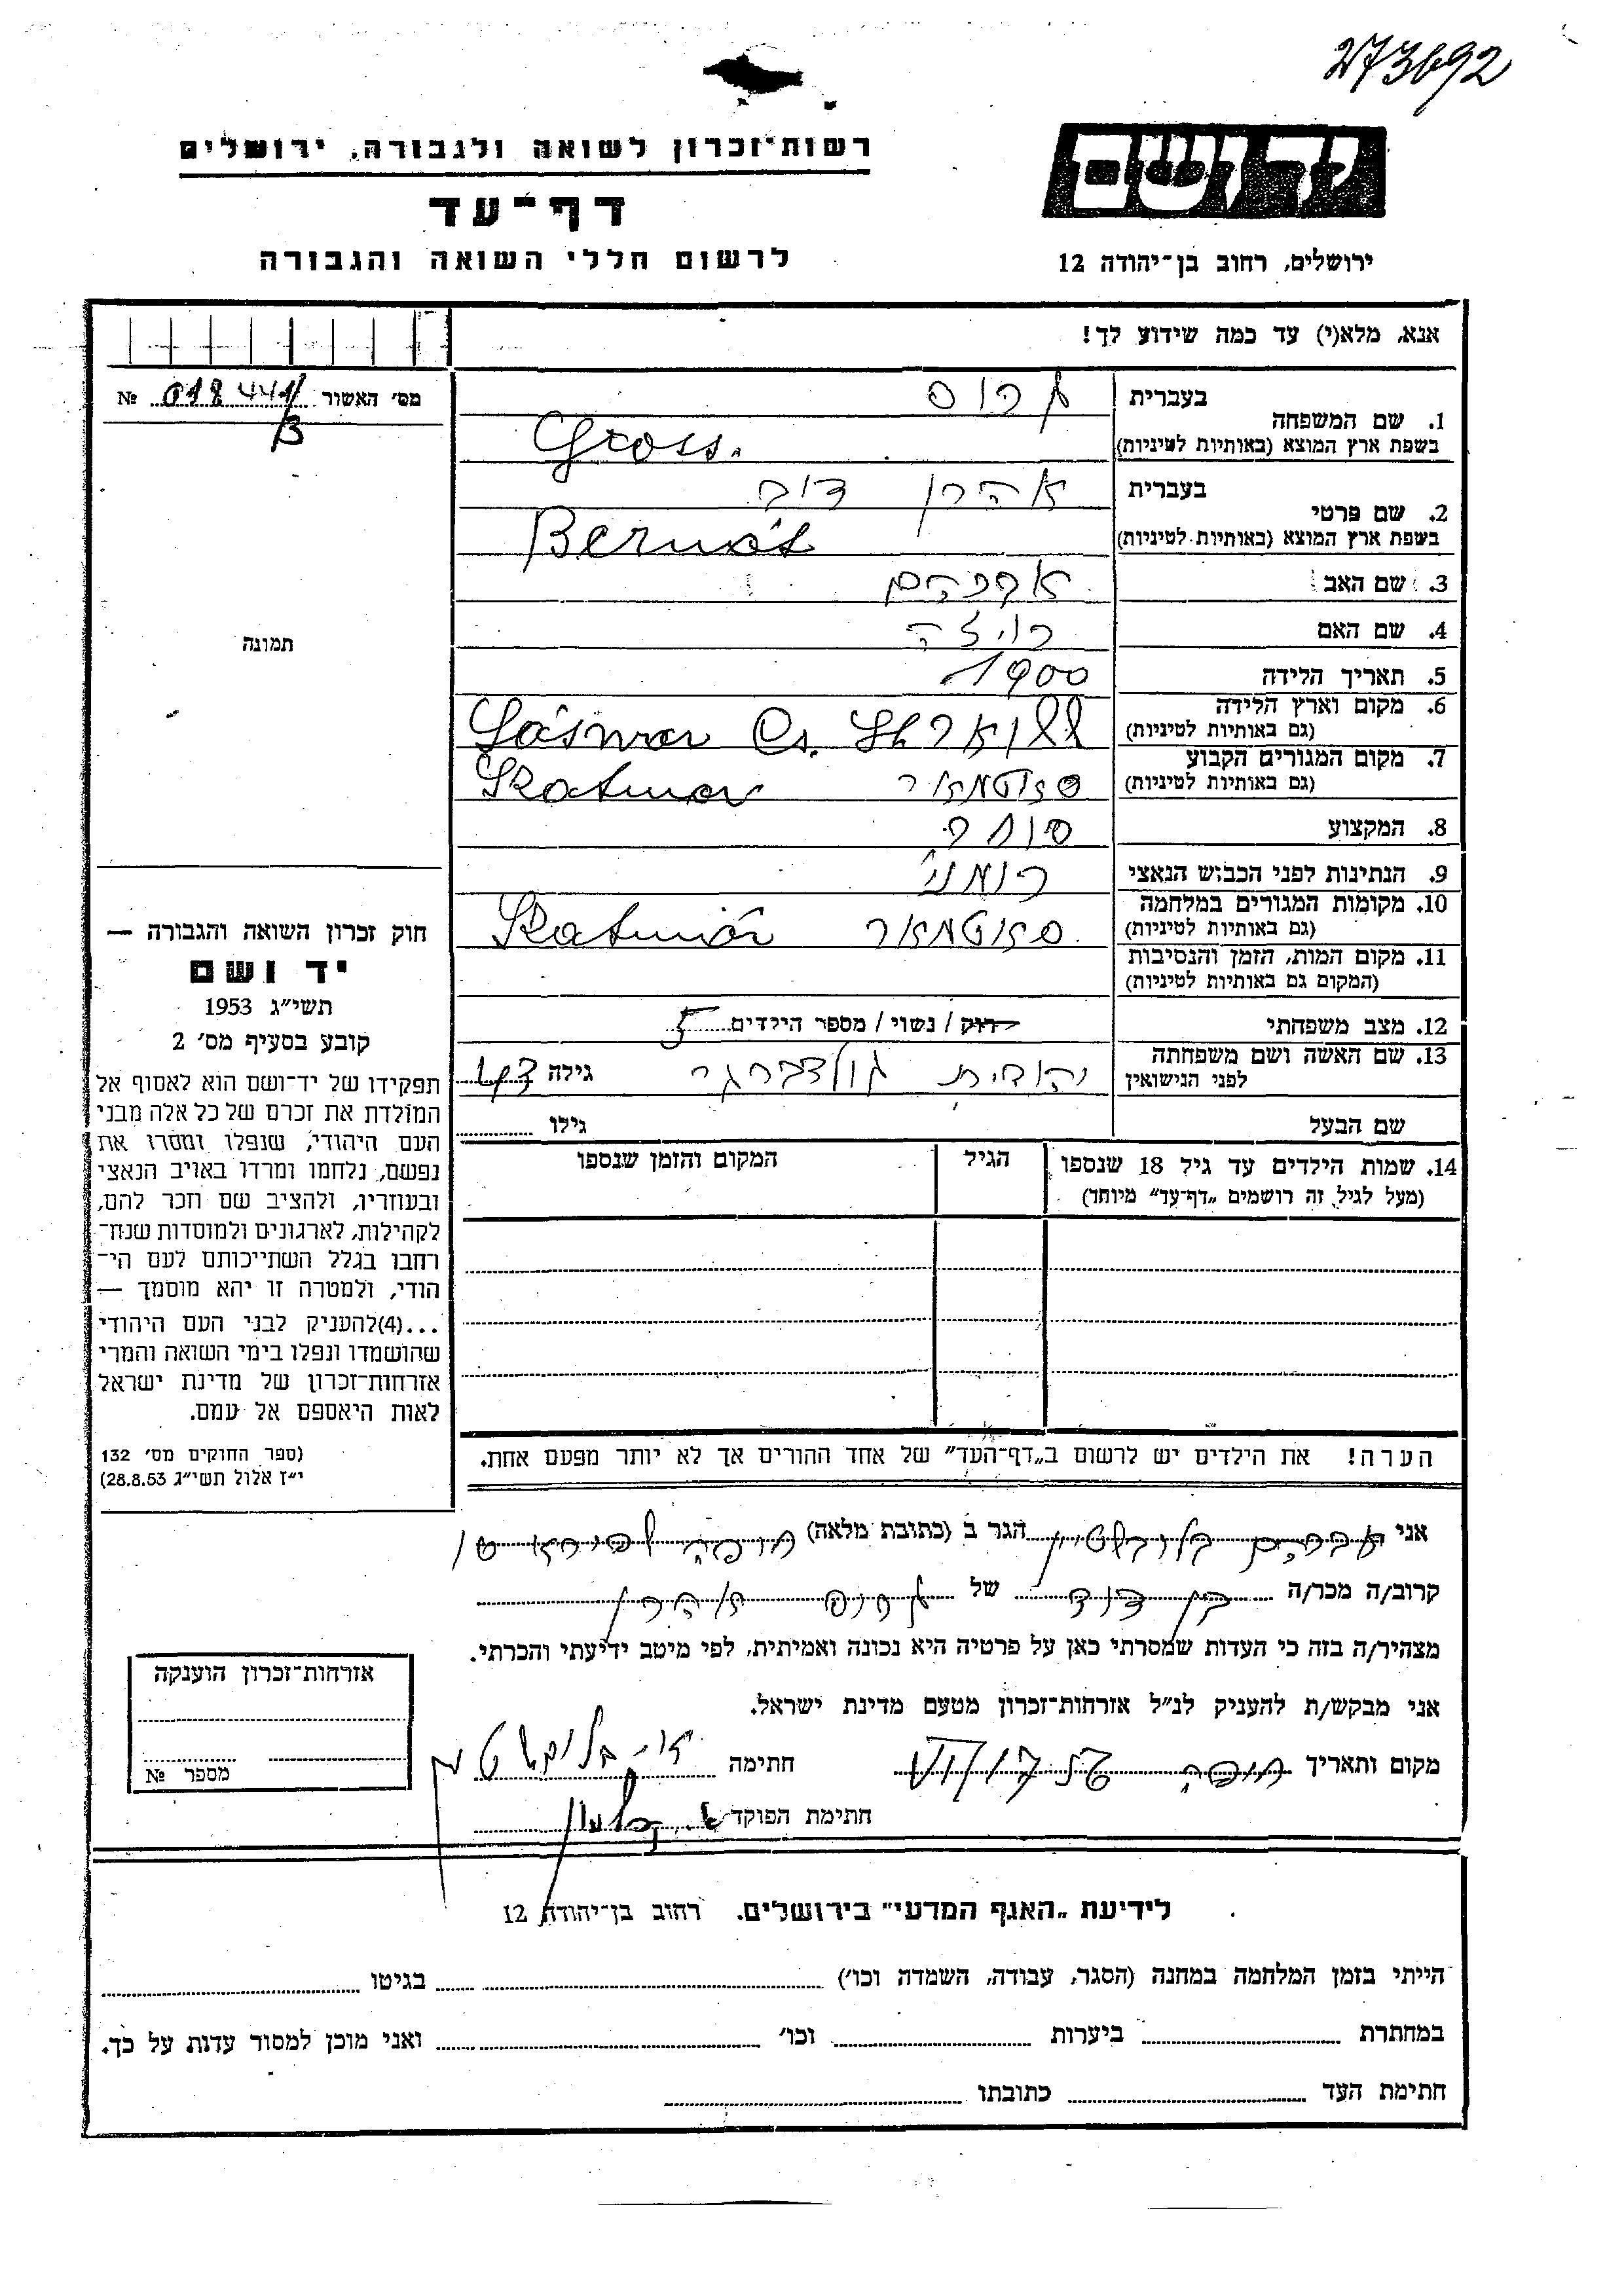 273692
יד ושם
ירושלים, רחוב בן־יהודה 12
רשות־זכרון לשואה ולגבורה, ירושלים
דף־עד
לרשום חללי השואה והגבורה
אנא, מלא(י) עד כמה שידוע לך!
מס׳ האשור 018444 №
B
תמונה
1. שם המשפחה בעברית גרוס
בשפת ארץ המוצא (באותיות לטיניות) Gross.
2. שם פרטי בעברית אהרן דוב
בשפת ארץ המוצא (באותיות לטיניות) Bernát
3. שם האב אברהם
4. שם האם רויזה
5. תאריך הלידה 1900
6. מקום וארץ הלידה
(גם באותיות לטיניות)
7. מקום המגורים הקבוע סאטמאר Szatmar
(גם באותיות לטיניות)
8. המקצוע סוחר
9. הנתינות לפני הכבוש הנאצי רומני
10. מקומות המגורים במלחמה סאטמאר Szatmár
(גם באותיות לטיניות)
11. מקום המות, הזמן והנסיבות
(המקום גם באותיות לטיניות)
12. מצב משפחתי רוק / נשוי / מספר הילדים 5
13. שם האשה ושם משפחתה
לפני הנישואין יהודית גולדברגר גילה 43
שם הבעל גילו
14. שמות הילדים עד גיל 18 שנספו הגיל המקום והזמן שנספו
(מעל לגיל זה רושמים „דף־עד״ מיוחד)
הערה! את הילדים יש לרשום ב„דף־העד״ של אחד ההורים אך לא יותר מפעם אחת.
חוק זכרון השואה והגבורה —
יד ושם
תשי״ג 1953
קובע בסעיף מס׳ 2
תפקידו של יד־ושם הוא לאסוף אל
המולדת את זכרם של כל אלה מבני
העם היהודי, שנפלו ומסרו את
נפשם, נלחמו ומרדו באויב הנאצי
ובעוזריו, ולהציב שם וזכר להם,
לקהילות, לארגונים ולמוסדות שנח־
רחבו בגלל השתייכותם לעם הי־
הודי, ולמטרה זו יהא מוסמך —
...(4) להעניק לבני העם היהודי
שהושמדו ונפלו בימי השואה והמרי
אזרחות־זכרון של מדינת ישראל
לאות היאספם אל עמם.
(ספר החוקים מס׳ 132
י״ז אלול תשי״ג 28.8.53)
אני אברהם הגר ב (כתובת מלאה) חיפה
קרוב/ה מכר/ה בן דוד של גרוס אהרן
מצהיר/ה בזה כי העדות שמסרתי כאן על פרטיה היא נכונה ואמיתית, לפי מיטב ידיעתי והכרתי.
אני מבקש/ת להעניק לנ״ל אזרחות־זכרון מטעם מדינת ישראל.
מקום ותאריך חיפה חתימה
חתימת הפוקד
אזרחות־זכרון הוענקה
מספר №
לידיעת „האגף המדעי״ בירושלים. רחוב בן־יהודה 12
הייתי בזמן המלחמה במחנה (הסגר, עבודה, השמדה וכו׳) בגיטו
במחתרת ביערות וכו׳ ואני מוכן למסור עדות על כך.
חתימת העד כתובתו